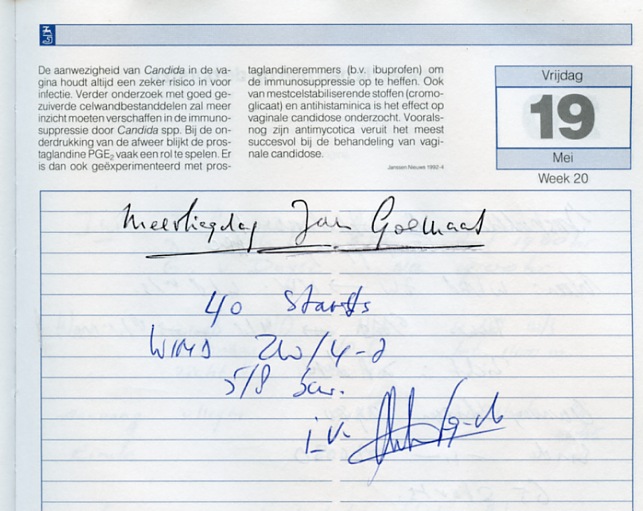 De aanwezigheid van Candida in de va-
gina houdt altijd een zeker risico in voor
infectie. Verder onderzoek met goed ge-
zuiverde celwandbestanddelen zal meer
inzicht moeten verschaffen in de immuno-
suppressie door Candida spp. Bij de on-
derdrukking van de afweer blijkt de pros-
taglandine PGE₂ vaak een rol te spelen. Er
is dan ook geëxperimenteerd met pros-
taglandineremmers (b.v. ibuprofen) om
de immunosuppressie op te heffen. Ook
van mestcelstabiliserende stoffen (cromo-
glicaat) en antihistaminica is het effect op
vaginale candidose onderzocht. Voorals-
nog zijn antimycotica veruit het meest
succesvol bij de behandeling van vagi-
nale candidose.
Janssen Nieuws 1992-4
Vrijdag
19
Mei
Week 20
Meevliegdag Jan Goemaat
40 starts
Wind ZW/4-
5/8 bew.
i.v.